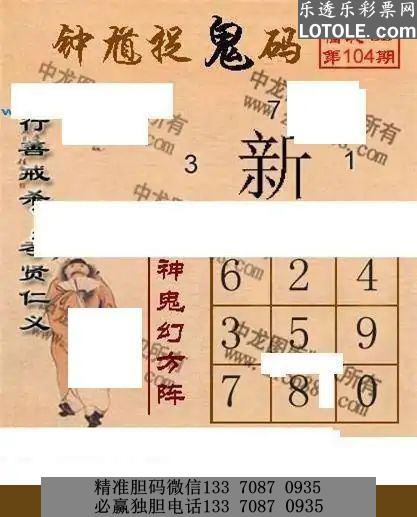 乐透乐彩票网
LOTOLE.COM
钟馗捉鬼码
第104期
行善戒杀
孝贤仁义
7
3
新
1
神鬼幻方阵
6 2 4
3 5 9
7 8 0
精准胆码微信133 7087 0935
必赢独胆电话133 7087 0935